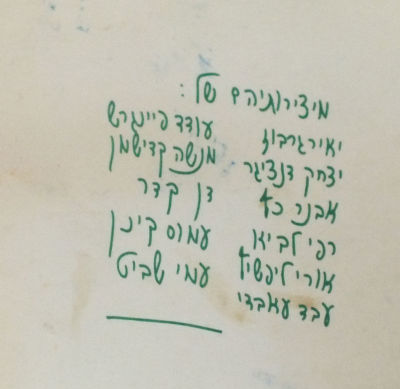 מיצירותיהם של:
יאיר גרבוז עודד פיינגרש
יצחק דנציגר מנשה קדישמן
אבנר כץ דן קדר
רפי לביא עמוס קינן
אורי ליפשיץ עמי שביט
עבד עאבדי